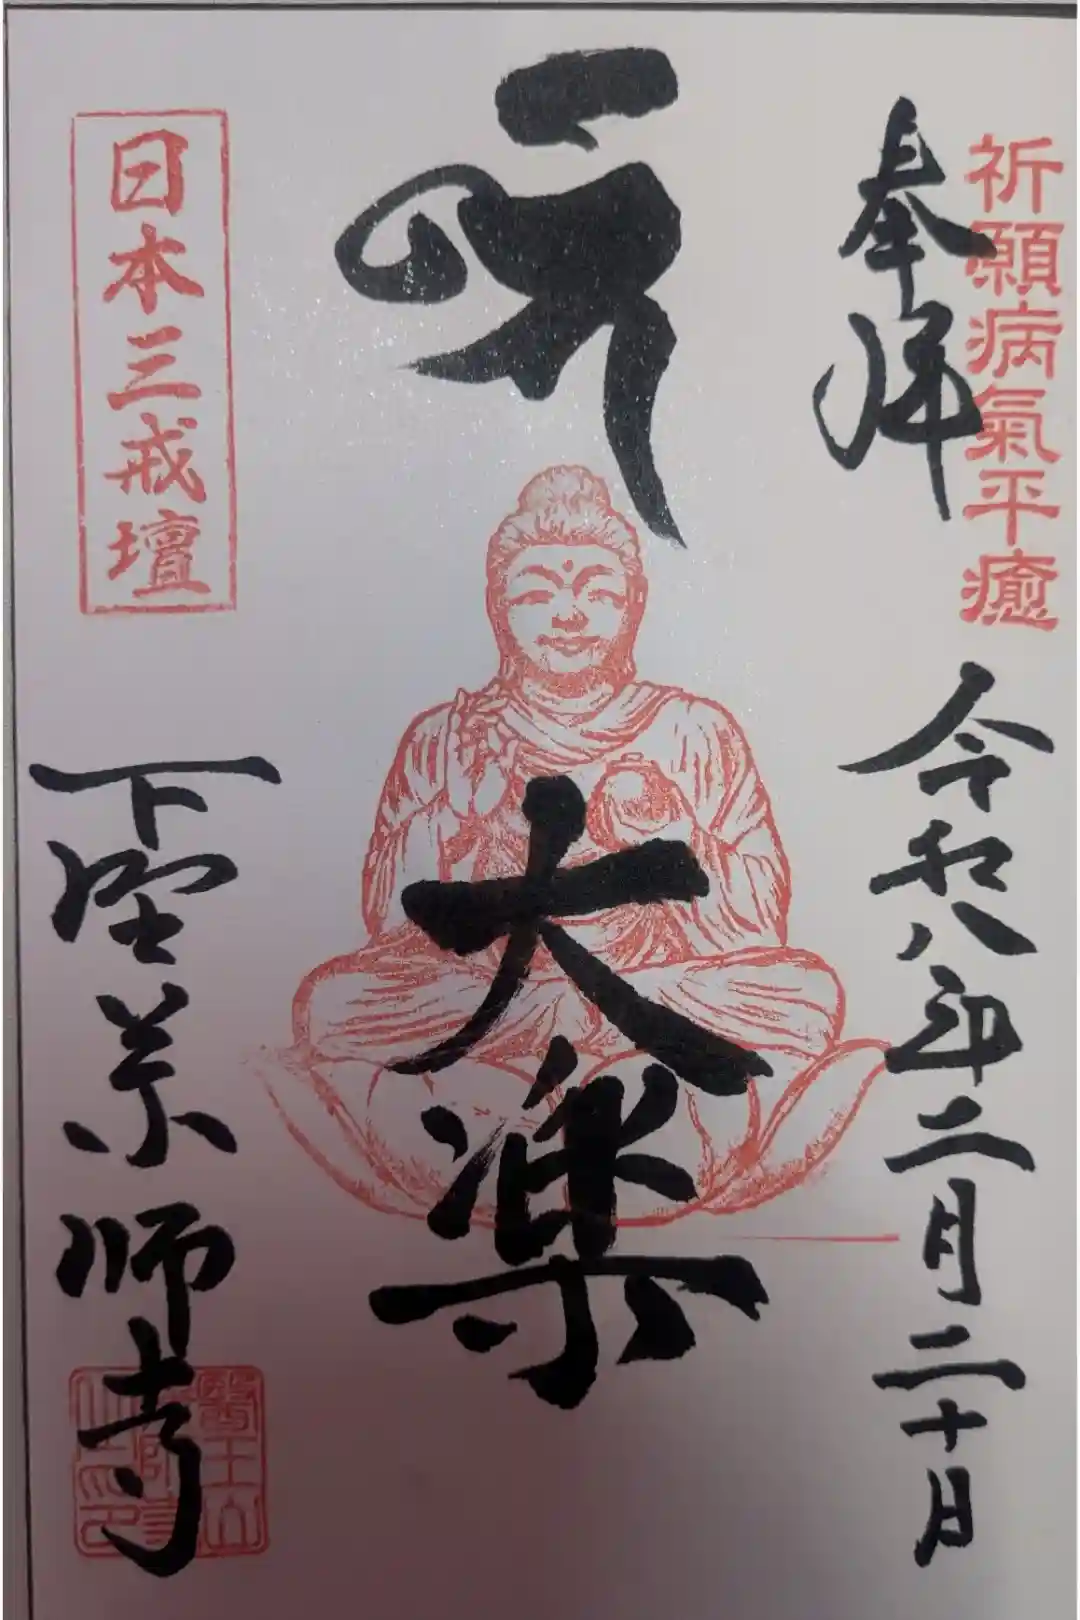 祈願病氣平癒
奉拝
令和八年二月二十日
大楽
日本三戒壇
下野薬師寺
醫王山